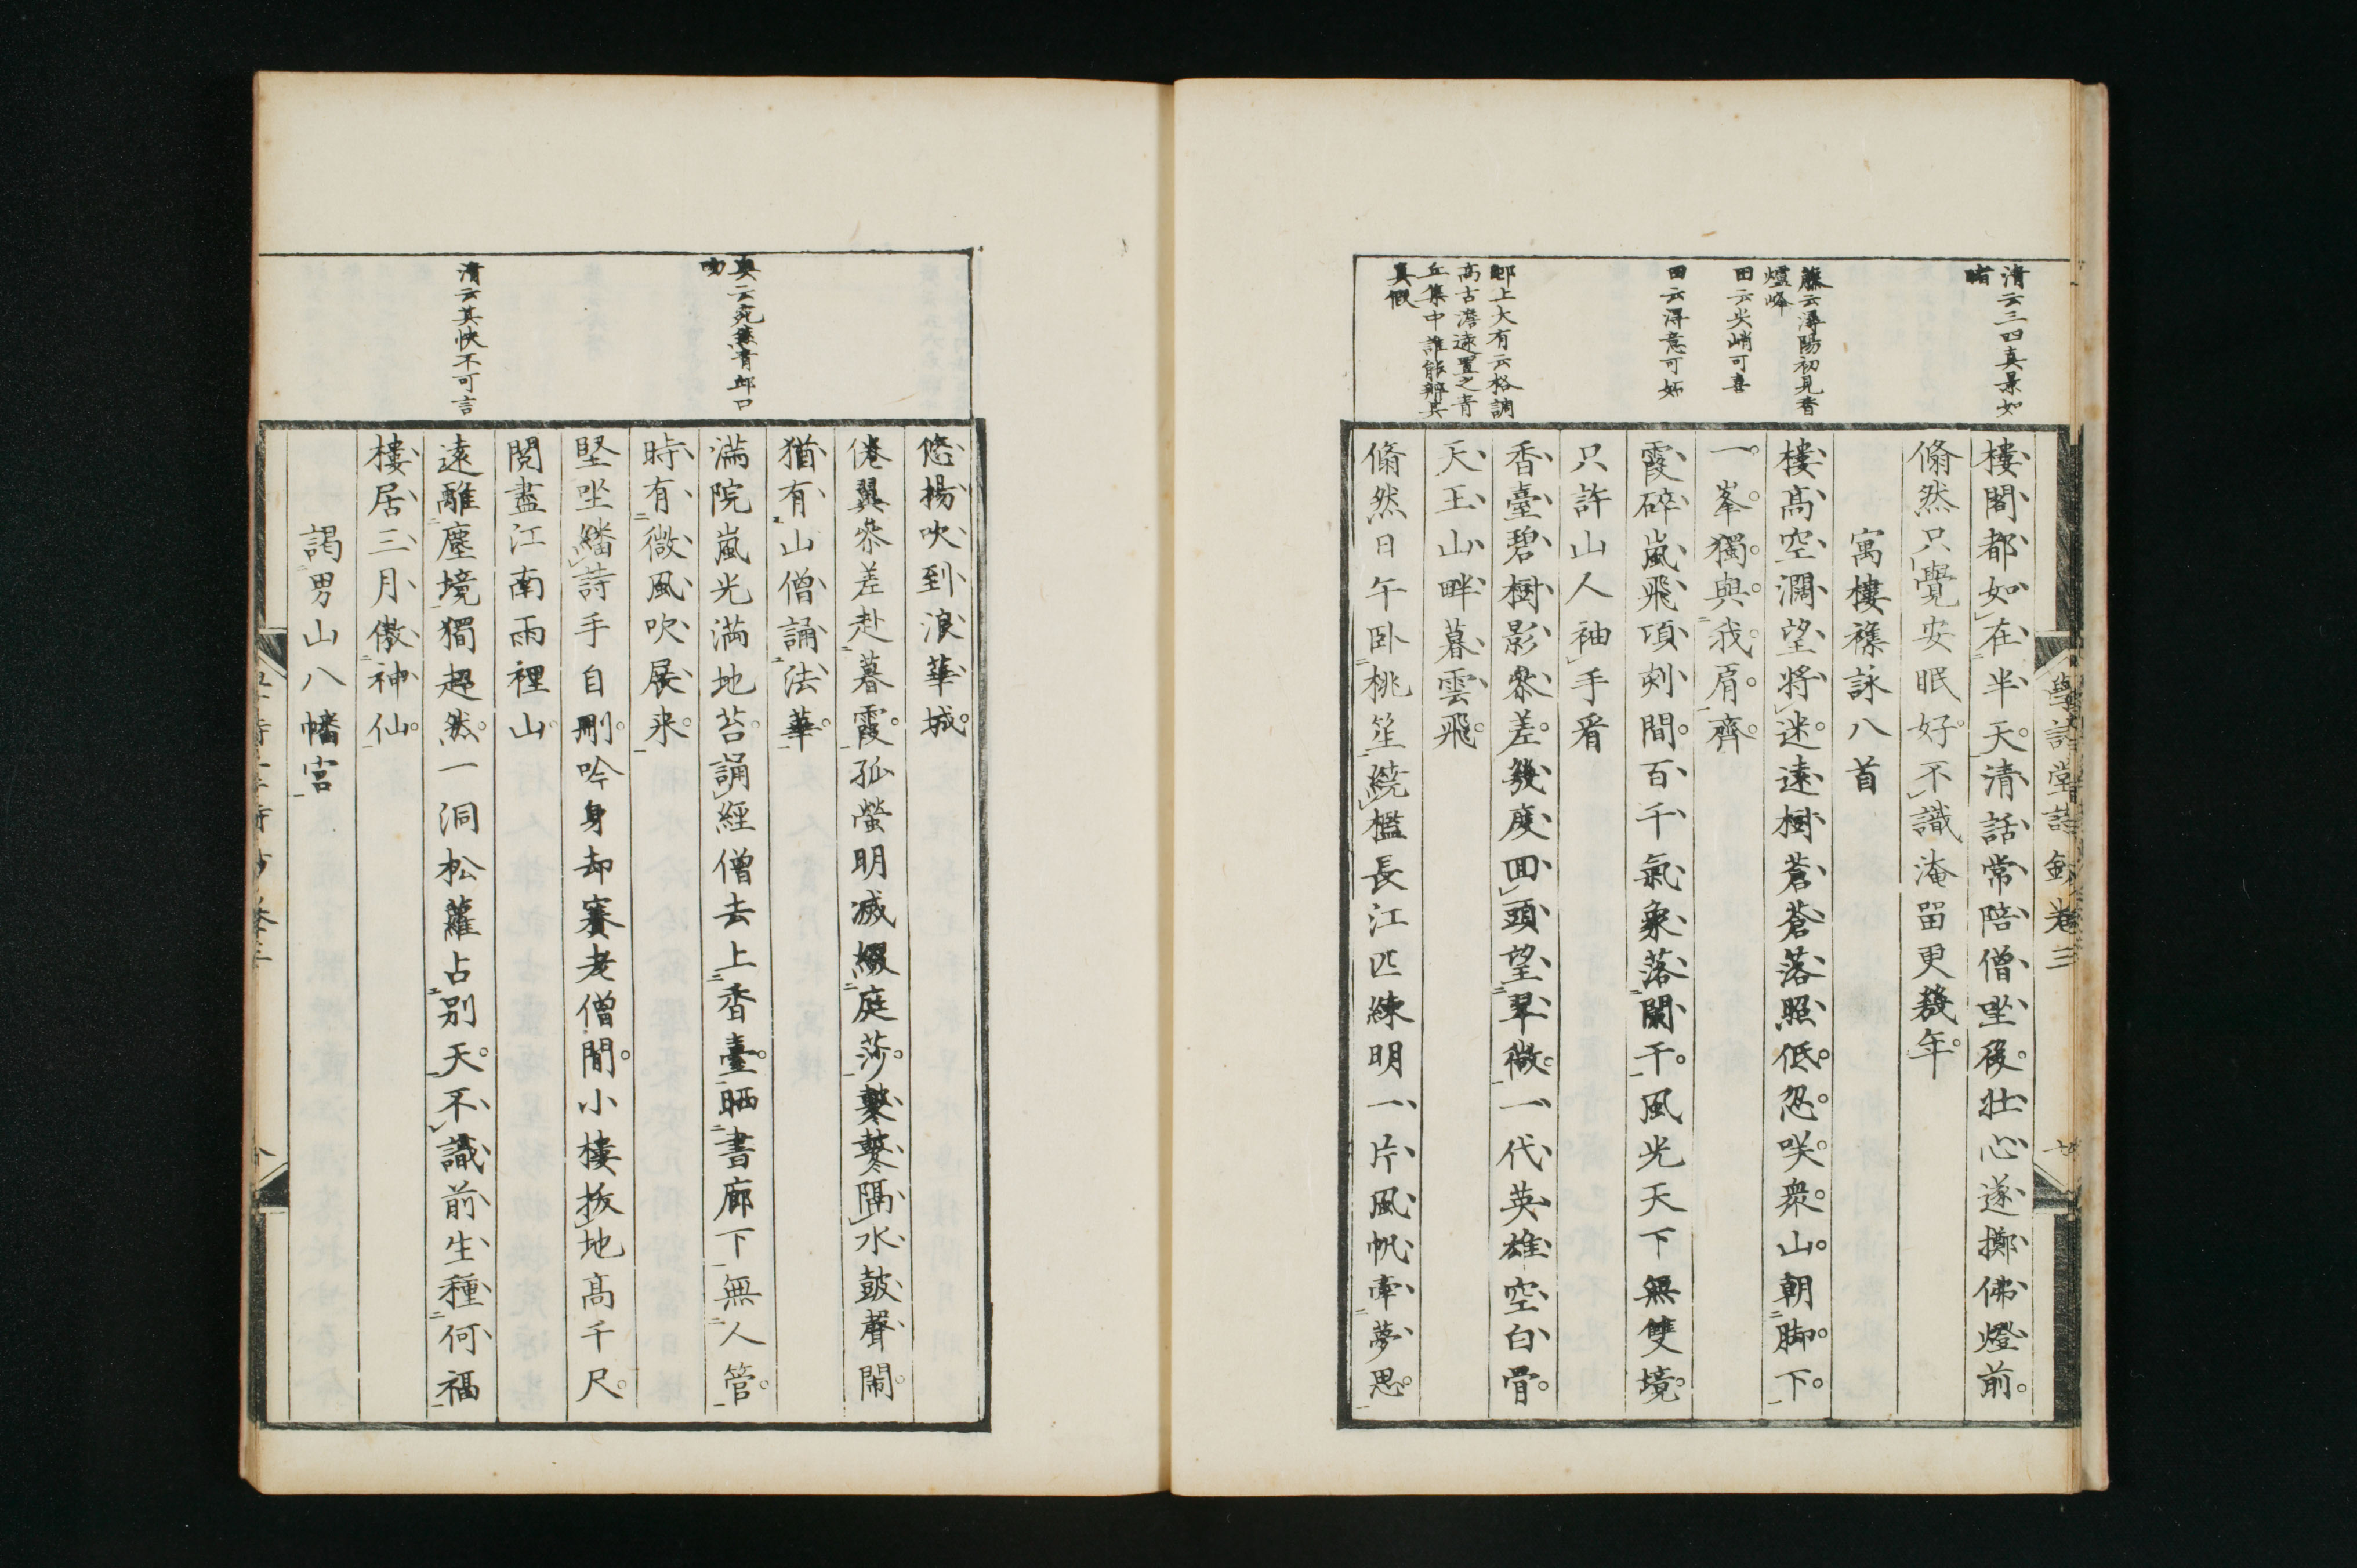 清云三四真景如
睹
藤云潯陽初見香
爐峰
田云尖峭可喜
田云得意可妬
邨上大有云格調
高古澹遠置之青
丘集中誰能辨其
真假
樓閣都如在半天清話常陪僧坐後壮心遂擲佛燈前
翛然只覺安眠好不識淹留更幾年
寓樓襍詠八首
樓高空濶望將迷遠樹蒼蒼落照低忽咲衆山朝脚下
一峯獨與我肩齊
霞碎嵐飛頃刻間百千氣象落闌干風光天下無雙境
只許山人袖手看
香臺碧樹影參差幾度回頭望翠微一代英雄空白骨
天王山畔暮雲飛
翛然日午卧桃笙繞檻長江匹練明一片風帆牽夢思
學詩堂詩鈔卷三
奥云宛然青邱口
吻
清云其快不可言
悠揚吹到浪華城
倦翼參差赴暮霞孤螢明滅綴庭莎鼕鼕隔水鼓聲閙
猶有山僧誦法華
滿院嵐光満地苔誦經僧去上香臺晒書廊下無人管
時有微風吹展来
堅坐繙詩手自刪吟身却賽老僧閒小樓拔地高千尺
閲盡江南雨裡山
遠離塵境獨超然一洞松蘿占別天不識前生種何福
樓居三月傲神仙
謁男山八幡宮